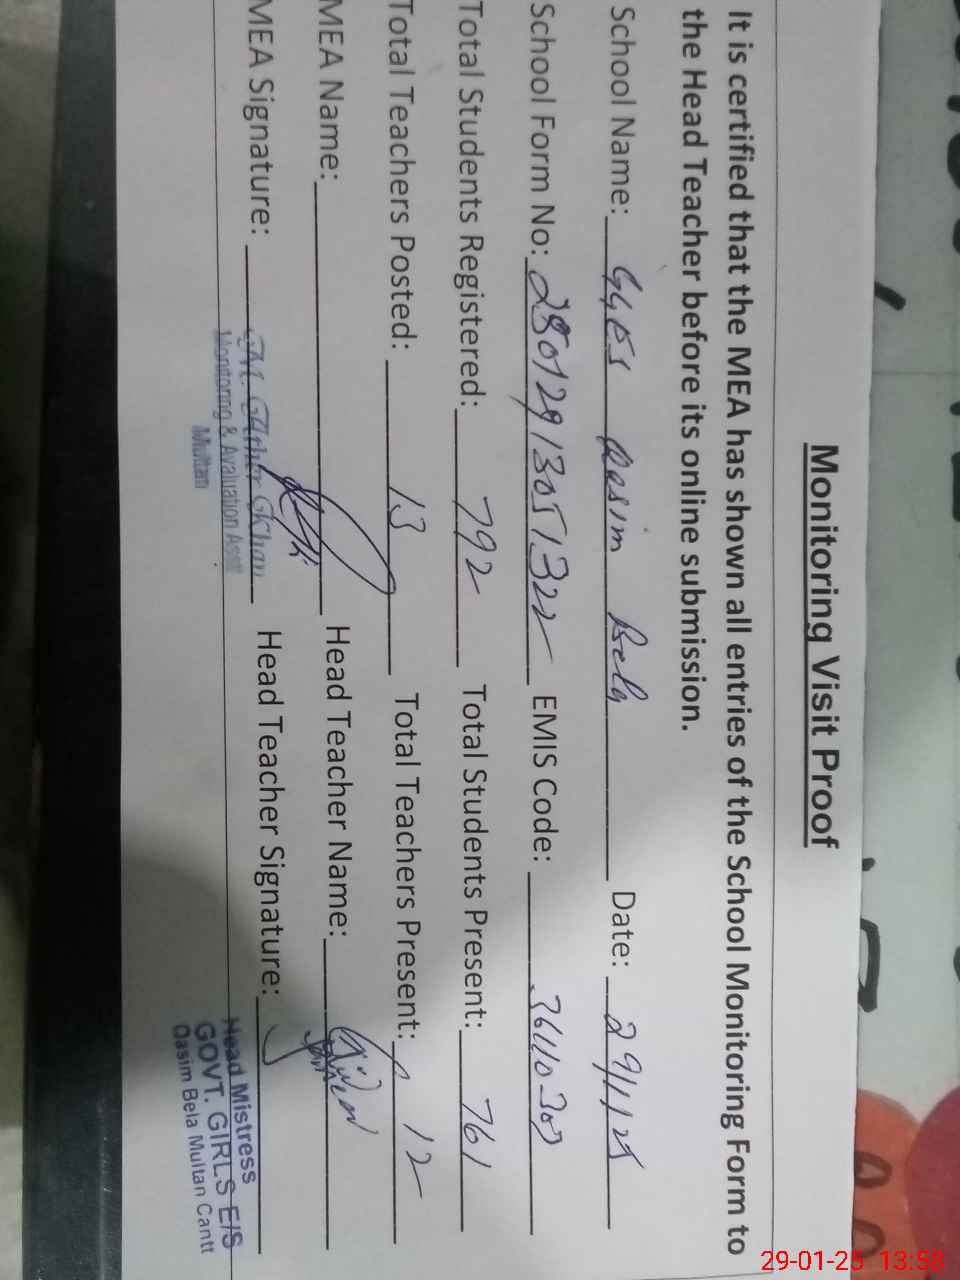 Monitoring Visit Proof
It is certified that the MEA has shown all entries of the School Monitoring Form to
the Head Teacher before its online submission.
School Name: GGES Qasim Bela Date: 29/1/25
School Form No: 28012913051322 EMIS Code:
Total Students Registered: 792 Total Students Present: 761
Total Teachers Posted: 13 Total Teachers Present: 12
MEA Name: Head Teacher Name:
MEA Signature: Head Teacher Signature:
Monitoring & Avaluation Asstt
Multan
Head Mistress
GOVT. GIRLS E/S
Qasim Bela Multan Cantt
29-01-25 13:58